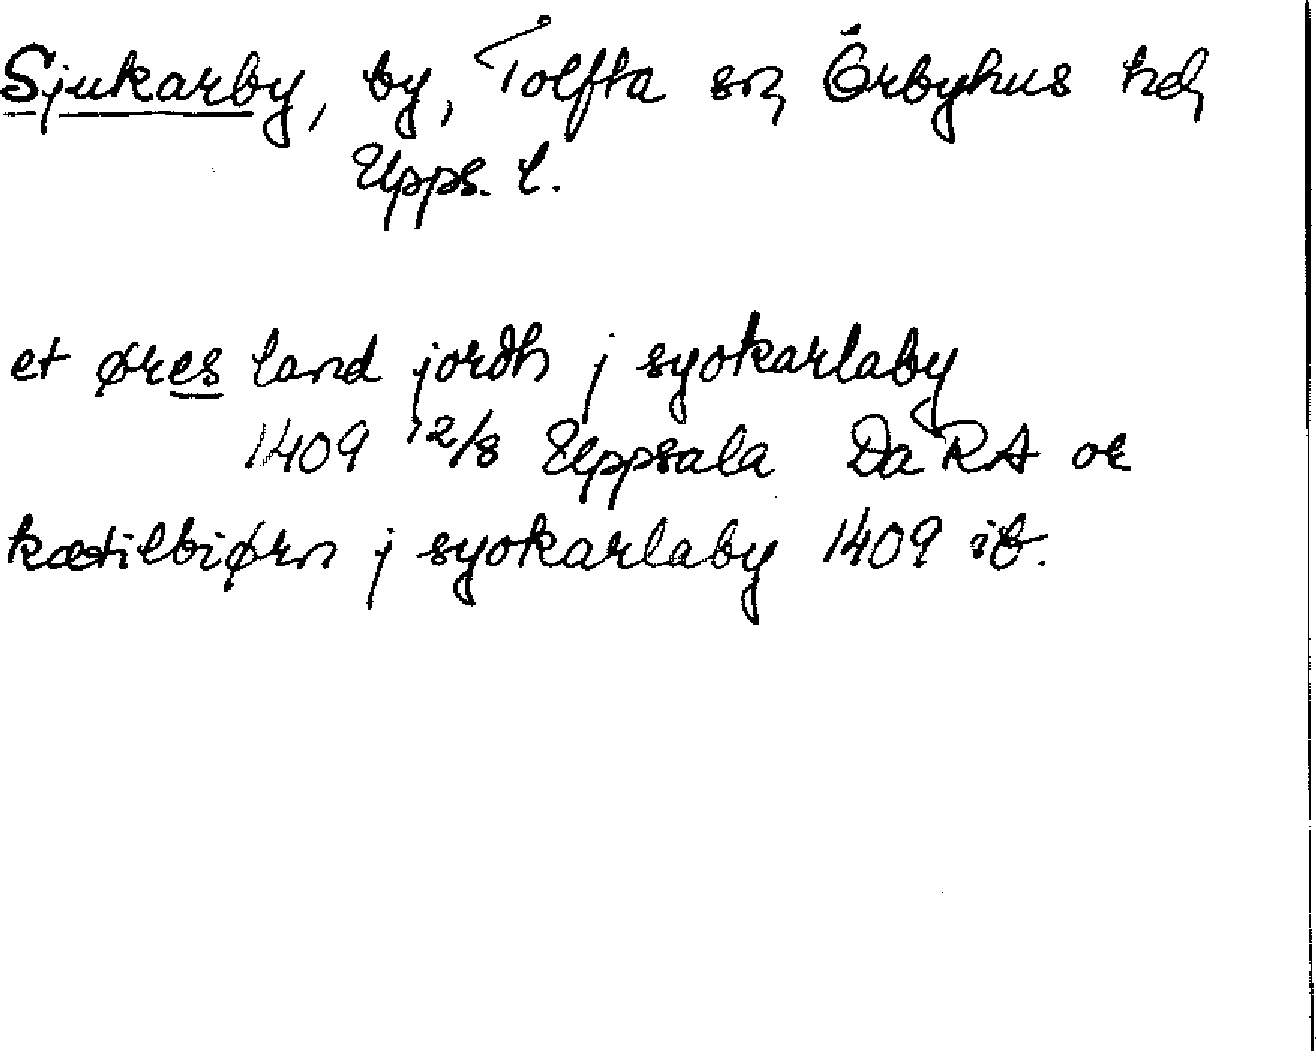 Sjukarby, by, Tolfta sn, Örbyhus hd,
Upps. l.
et øres land jordh j syokarlaby
1409 12/8 Uppsala Da RA or
kætilbiørn j syokarlaby 1409 ib.